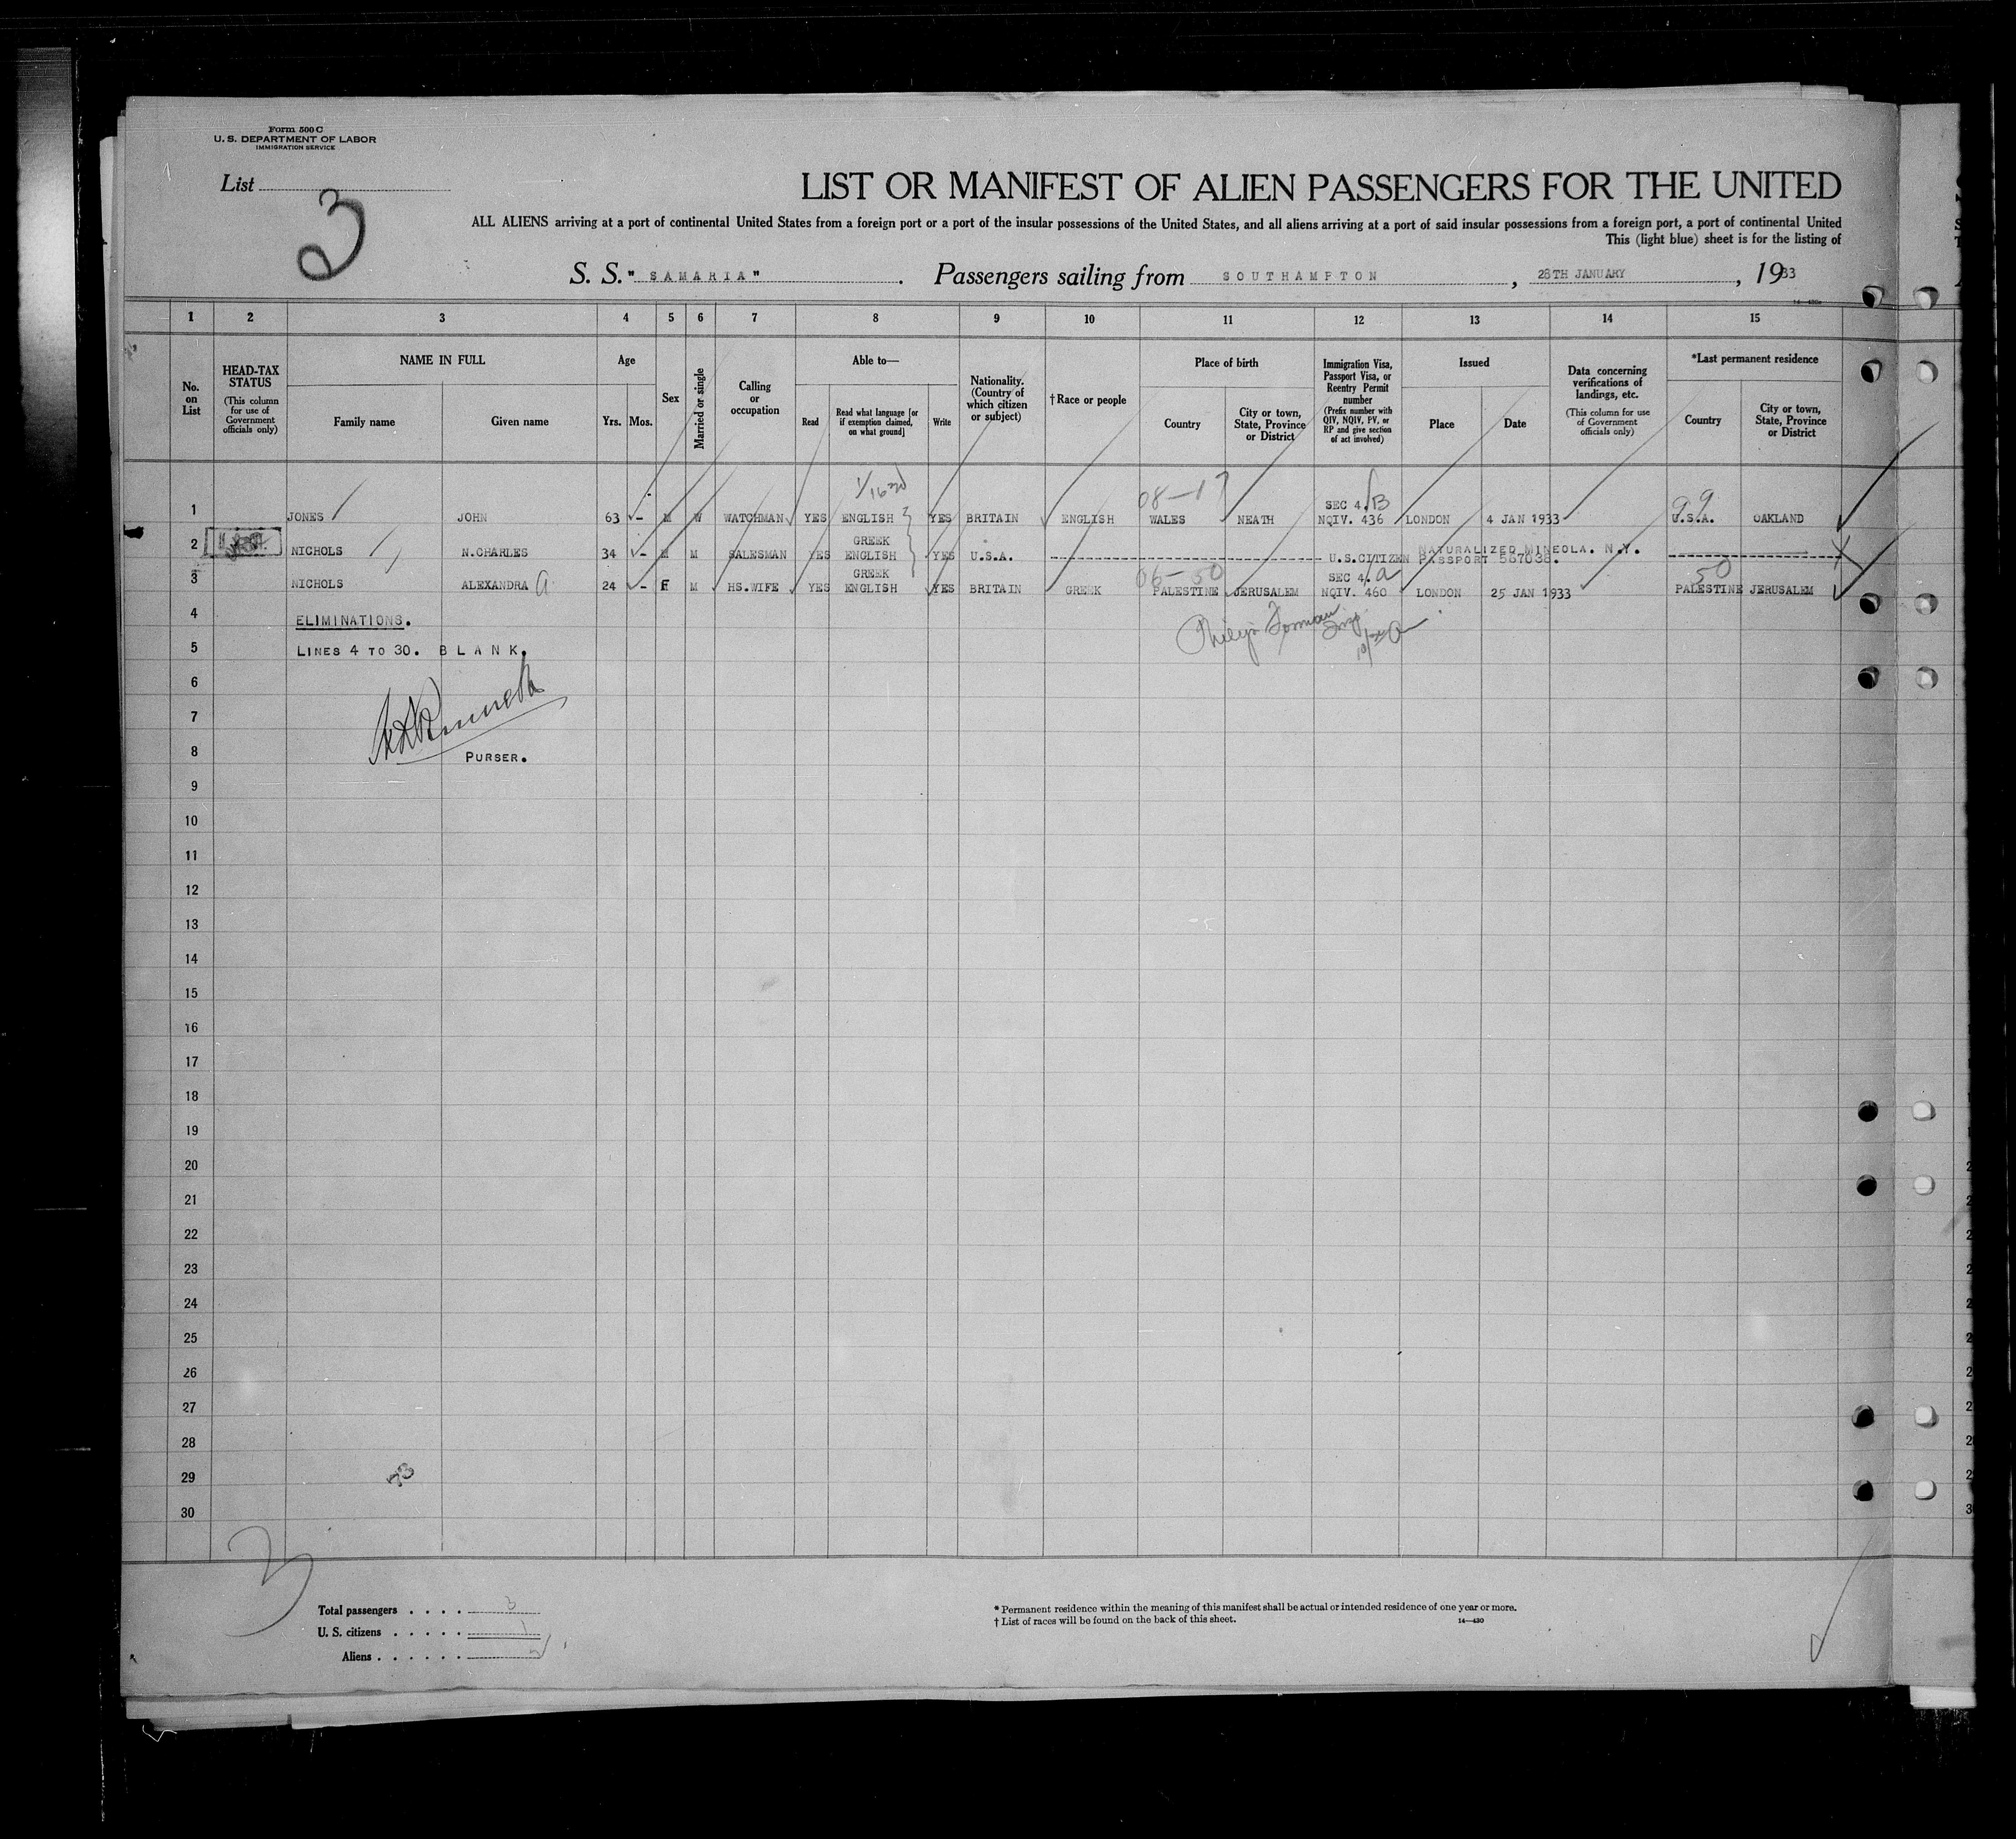 Form 500 C
U. S. DEPARTMENT OF LABOR
IMMIGRATION SERVICE
List
3
LIST OR MANIFEST OF ALIEN PASSENGERS FOR THE UNITED
ALL ALIENS arriving at a port of continental United States from a foreign port or a port of the insular possessions of the United States, and all aliens arriving at a port of said insular possessions from a foreign port, a port of continental United
This (light blue) sheet is for the listing of
S. S. "SAMARIA". Passengers sailing from SOUTHAMPTON, 28TH JANUARY, 1933
1 2 3 4 5 6 7 8 9 10 11 12 13 14 15
No. on List
HEAD-TAX STATUS (This column for use of Government officials only)
NAME IN FULL
Family name Given name
Age
Yrs. Mos.
Sex
Married or single
Calling or occupation
Able to—
Read
Read what language [or if exemption claimed, on what ground]
Write
Nationality. (Country of which citizen or subject)
† Race or people
Place of birth
Country
City or town, State, Province or District
Immigration Visa, Passport Visa, or Reentry Permit number (Prefix number with QIV, NQIV, PV, or RP and give section of act involved)
Issued
Place Date
Data concerning verifications of landings, etc. (This column for use of Government officials only)
*Last permanent residence
Country
City or town, State, Province or District
08-17 SEC 4. B 99
1 JONES JOHN 63 - M W WATCHMAN YES ENGLISH YES BRITAIN ENGLISH WALES NEATH NQIV. 436 LONDON 4 JAN 1933 U.S.A. OAKLAND
GREEK NATURALIZED MINEOLA. N.Y.
2 NICHOLS N.CHARLES 34 - M M SALESMAN YES ENGLISH YES U.S.A. U.S.CITIZEN PASSPORT 567038.
GREEK 06-50 SEC 4. a 50
3 NICHOLS ALEXANDRA a 24 - F M HS.WIFE YES ENGLISH YES BRITAIN GREEK PALESTINE JERUSALEM NQIV. 460 LONDON 25 JAN 1933 PALESTINE JERUSALEM
4 ELIMINATIONS.
5 LINES 4 TO 30. BLANK.
6
7
8 PURSER.
9
10
11
12
13
14
15
16
17
18
19
20
21
22
23
24
25
26
27
28
29
30
3
Total passengers . . . . 3
U. S. citizens . . . . . 1
Aliens . . . . . . 2
* Permanent residence within the meaning of this manifest shall be actual or intended residence of one year or more.
† List of races will be found on the back of this sheet. 14—430